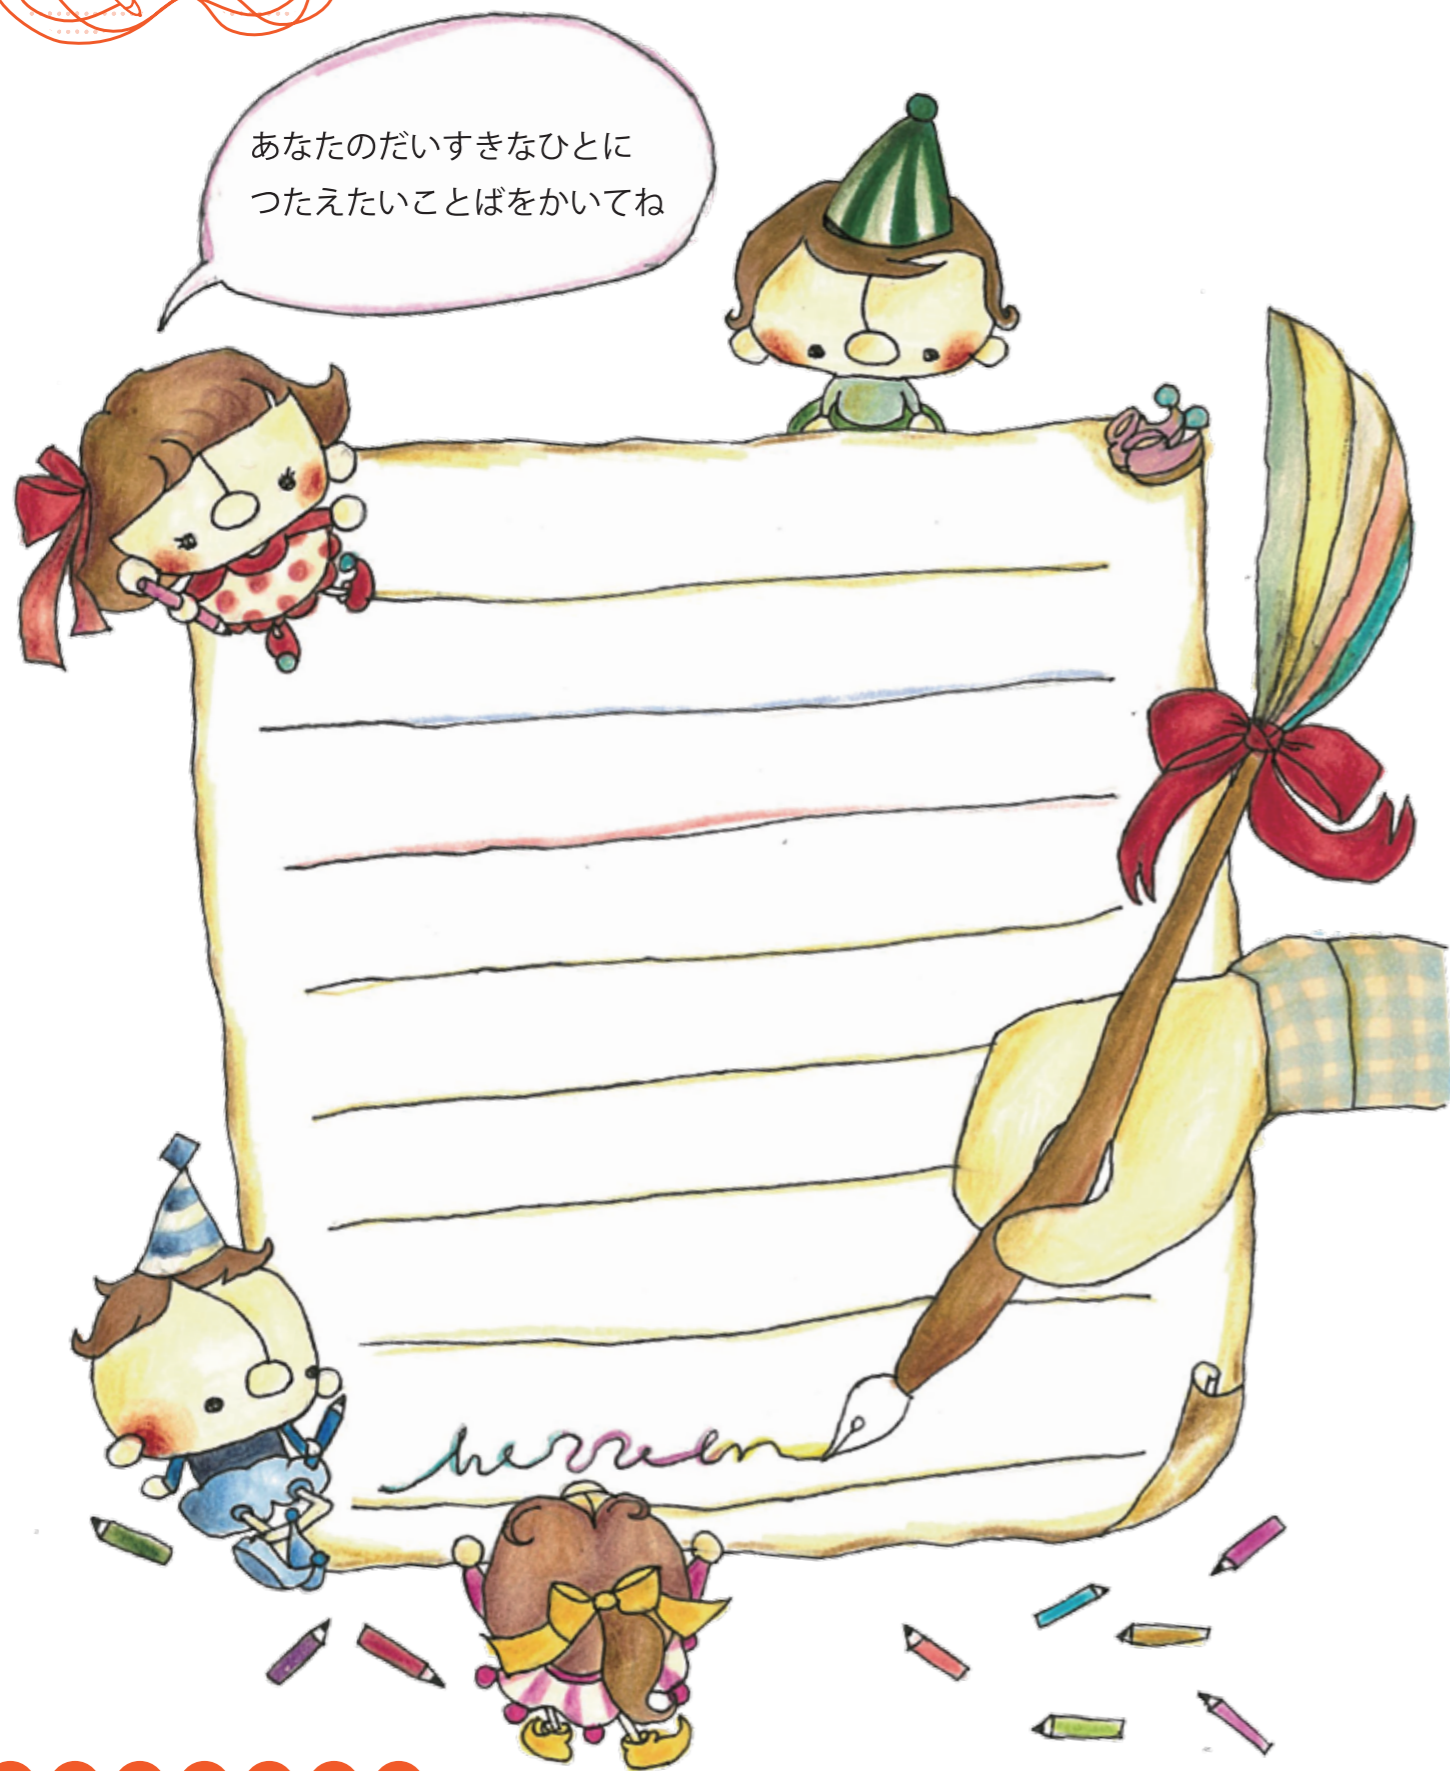 あなたのだいすきなひとに
つたえたいことばをかいてね